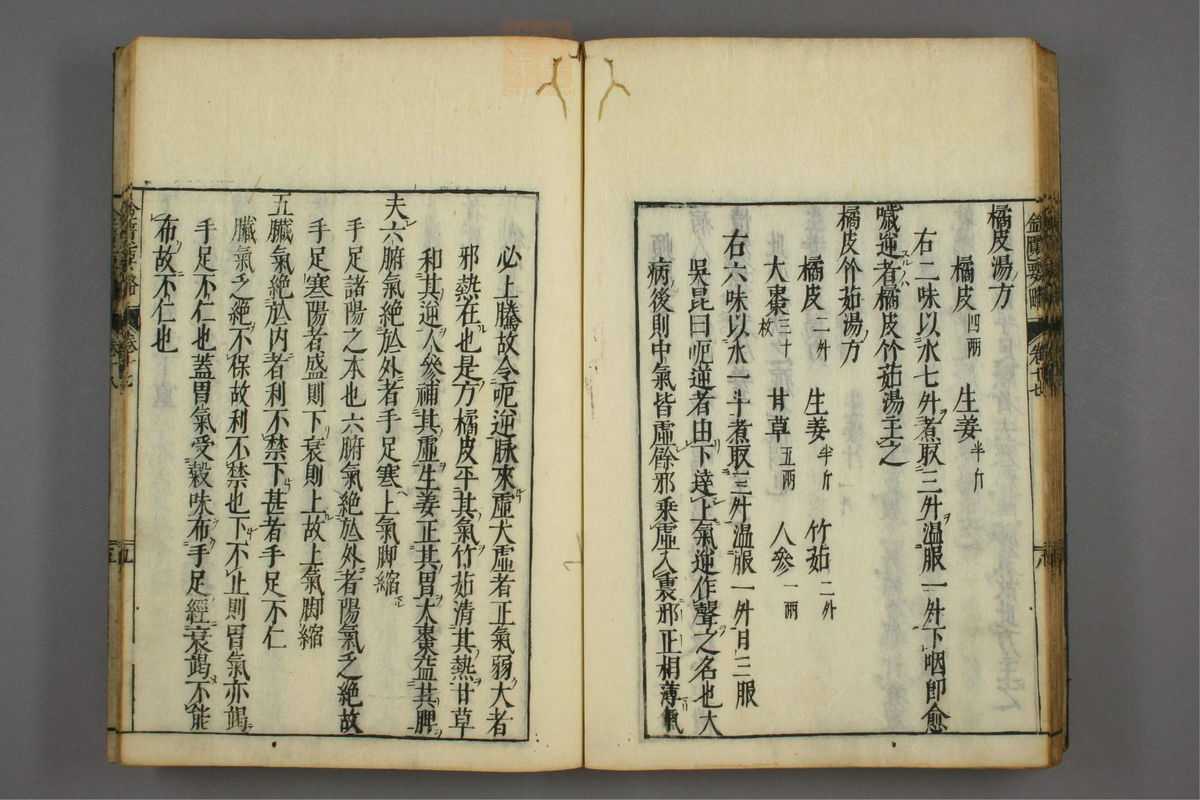 橘皮湯方
橘皮四兩　生姜半斤
右二味以水七升煮取三升温服一升下咽即愈
噦逆者橘皮竹茹湯主之
橘皮竹茹湯方
橘皮二升　生姜半斤　竹茹二升
大棗三十枚　甘草五兩　人參一兩
右六味以水一斗煮取三升温服一升日三服
吳昆曰呃逆者由下達上氣逆作聲之名也大
病後則中氣皆虛餘邪乘虛入裏邪正相薄氣
必上騰故令呃逆脉來虛大虛者正氣弱大者
邪熱在也是方橘皮平其氣竹茹清其熱甘草
和其逆人參補其虛生姜正其胃大棗益其脾
夫六腑氣絶於外者手足寒上氣脚縮
手足諸陽之本也六腑氣絶於外者陽氣乏絶故
手足寒陽者盛則下衰則上故上氣脚縮
五臟氣絶於内者利不禁下甚者手足不仁
臟氣乏絶不保故利不禁也下不止則胃氣亦竭
手足不仁也蓋胃氣受穀味布手足經衰竭不能
布故不仁也
金匱要略　卷十七